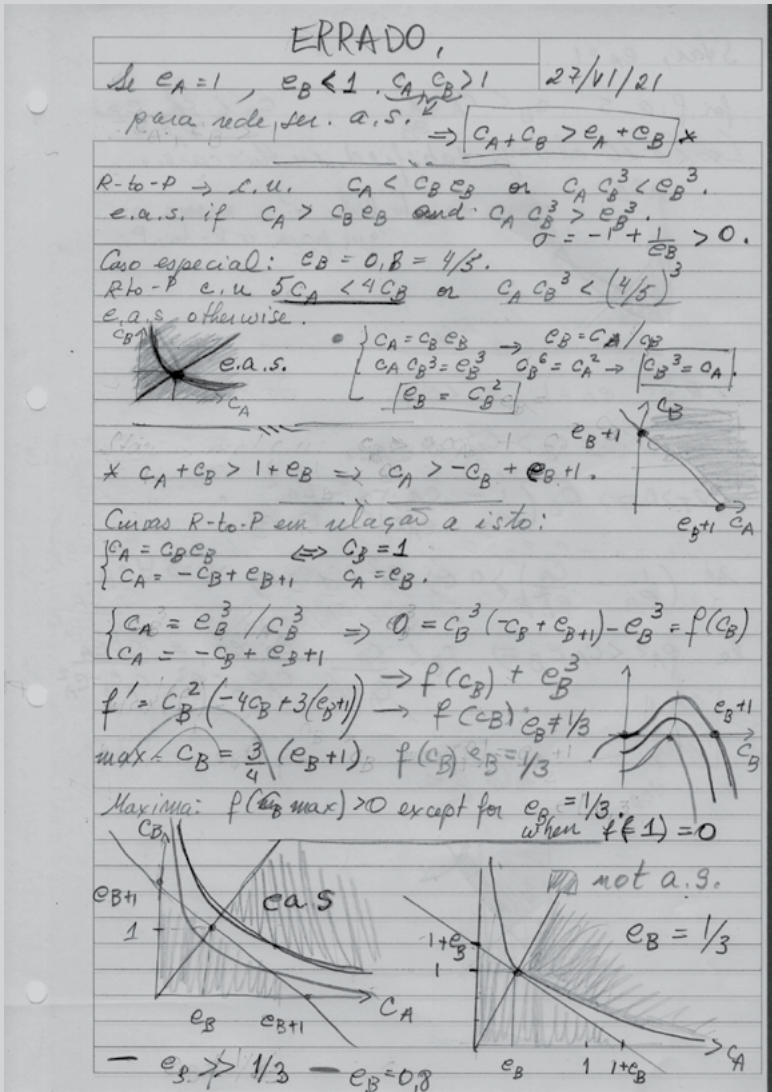 ERRADO,
Se e_A = 1, e_B < 1. c_A c_B > 1 27/VI/21
para rede ser a.s. ⇒ c_A + c_B > e_A + e_B *
R-to-P → c.u. c_A < c_B e_B or c_A c_B^3 < e_B^3.
e.a.s. if c_A > c_B e_B and c_A c_B^3 > e_B^3.
σ = -1 + 1/e_B > 0.
Caso especial: e_B = 0,8 = 4/5.
R-to-P c.u 5c_A < 4c_B or c_A c_B^3 < (4/5)^3
e.a.s. otherwise.
c_B
e.a.s.
c_A
{ c_A = c_B e_B → e_B = c_A / c_B
c_A c_B^3 = e_B^3 c_B^6 = c_A^2 → c_B^3 = c_A.
e_B = c_B^2
* c_A + c_B > 1 + e_B ⇒ c_A > -c_B + e_B + 1.
c_B
e_B+1
e_B+1 c_A
Curvas R-to-P em relação a isto:
{ c_A = c_B e_B ⇔ c_B = 1
c_A = -c_B + e_B+1 c_A = e_B.
{ c_A = e_B^3 / c_B^3 ⇒ 0 = c_B^3 (-c_B + e_B+1) - e_B^3 = f(c_B)
c_A = -c_B + e_B+1
f' = c_B^2 (-4c_B + 3(e_B+1)) → f(c_B) + e_B^3
→ f(c_B) e_B ≠ 1/3
max - c_B = 3/4 (e_B+1) f(c_B) e_B = 1/3
e_B+1
c_B
Maxima: f(c_B max) > 0 except for e_B = 1/3.
when f(1) = 0
c_B
e_B+1
1
e.a.s
e_B e_B+1 c_A
not a.s.
e_B = 1/3
1+e_B
1
e_B 1 1+e_B c_A
— e_B >> 1/3 — e_B = 0,8